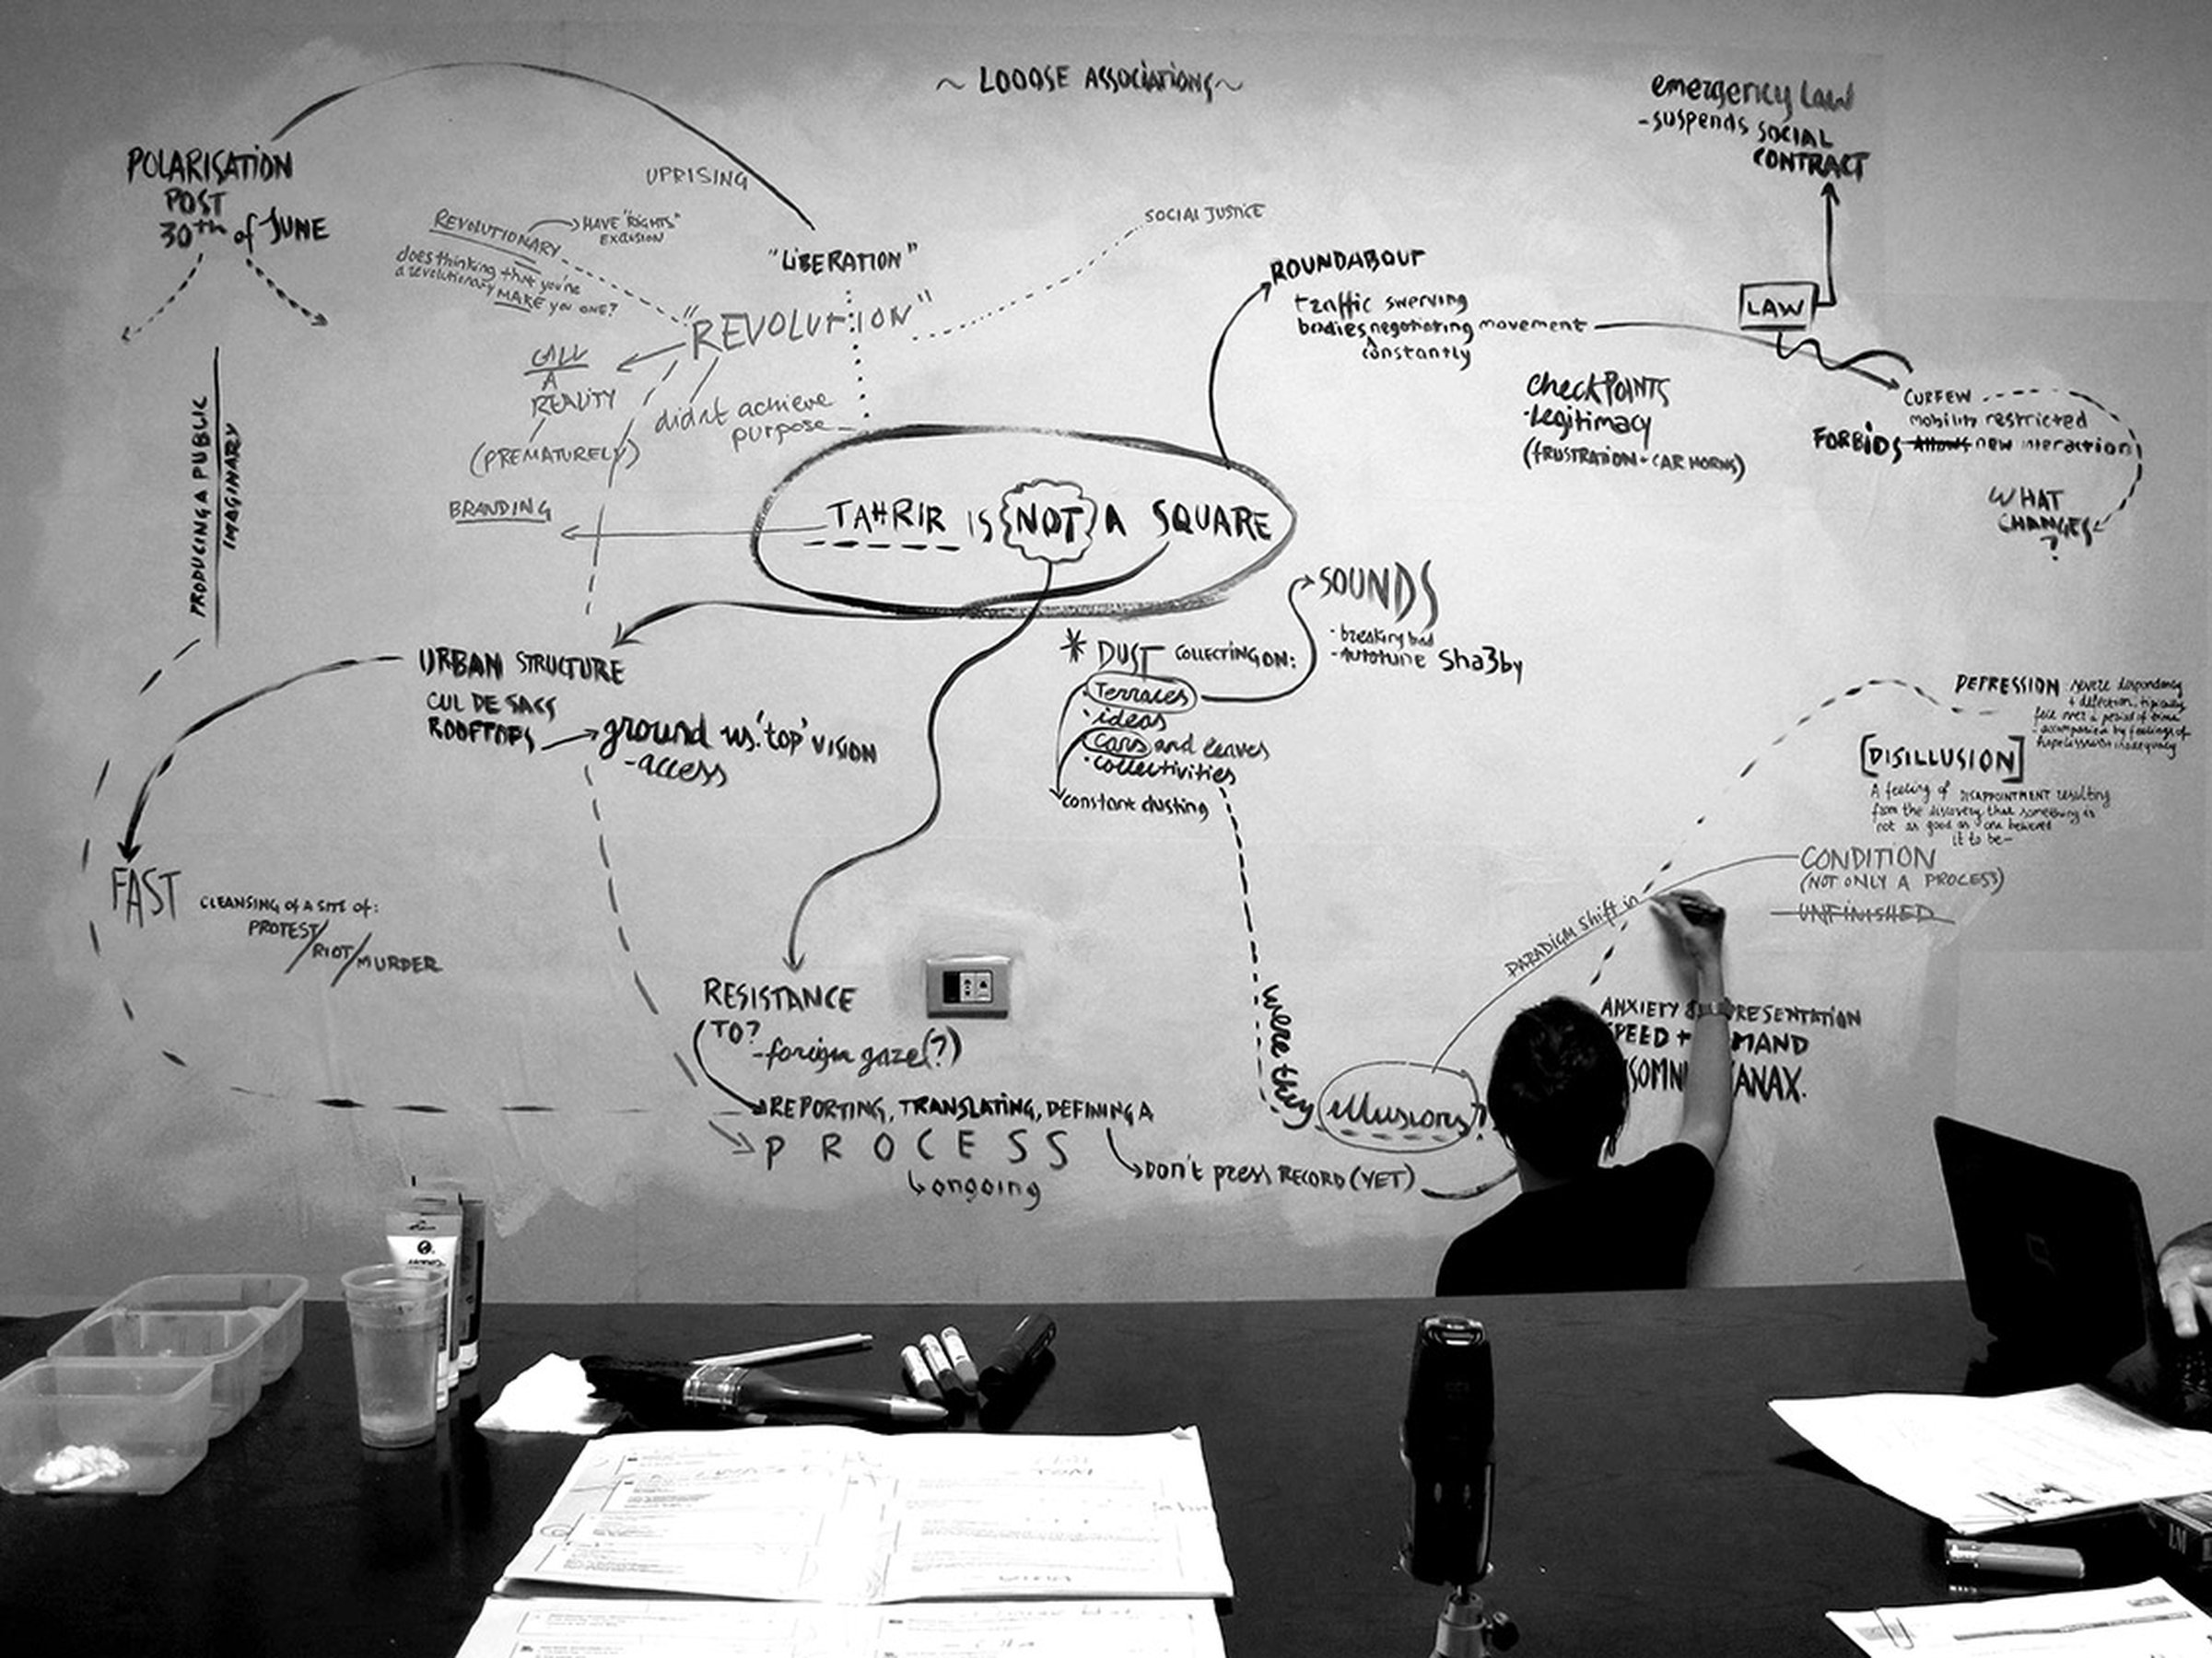 ~ LOOOSE ASSOCIATIONS ~
emergency law
-suspends SOCIAL
CONTRACT
POLARISATION
POST
30th of JUNE
UPRISING
REVOLUTIONARY
HAVE "RIGHTS"
EXCLUSION
does thinking that you're
a revolutionary MAKE you ONE?
"LIBERATION"
SOCIAL JUSTICE
"REVOLUTION"
CALL
A
REALITY
(PREMATURELY)
didnt achieve
purpose
BRANDING
PRODUCING A PUBLIC
IMAGINARY
ROUNDABOUT
traffic swerving
bodies negotiating movement
constantly
LAW
checkPOINTS
-Legitimacy
(FRUSTRATION - CAR HORNS)
CURFEW
mobility restricted
FORBIDS Allows new interaction
WHAT
CHANGES
?
TAHRIR IS NOT A SQUARE
SOUNDS
- breaking bad
- Autotune Sha3by
* DUST COLLECTING ON:
Terraces
· ideas
cars and leaves
· collectivities
constant dusting
URBAN STRUCTURE
CUL DE SACS
ROOFTOPS
ground vs. 'top' VISION
-access
FAST
CLEANSING of A SITE of:
PROTEST/
RIOT/
MURDER
DEPRESSION severe despondency
+ dejection, typically
felt over a period of time
accompanied by feelings of
hopelessness inadequacy
[DISILLUSION]
A feeling of DISAPPOINTMENT resulting
from the discovery that something is
not as good as one believed
it to be-
CONDITION
(NOT ONLY A PROCESS)
UNFINISHED
PARADIGM Shift in
RESISTANCE
TO?
-foreign gaze(?)
REPORTING, TRANSLATING, DEFINING A
PROCESS
ongoing
Don't press RECORD (YET)
were they
illusions?
ANXIETY
SPEED +